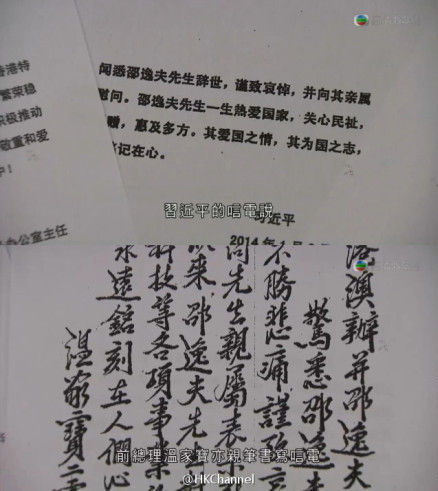 香港特
繁荣稳
积极推动
敬重和爱
办公室主任
闻悉邵逸夫先生辞世，谨致哀悼，并向其亲属
慰问。邵逸夫先生一生热爱国家，关心民祉，
赠，惠及多方。其爱国之情，其为国之志，
记在心。
习近平
2014年
習近平的唁電說
港澳辦并邵逸夫
驚悉邵逸夫
不勝悲痛謹致哀
先生親屬表
以来邵逸夫先
科技等各項事業
永遠銘刻在人們心
温家寶二
前總理溫家寶亦親筆書寫唁電
@HKChannel